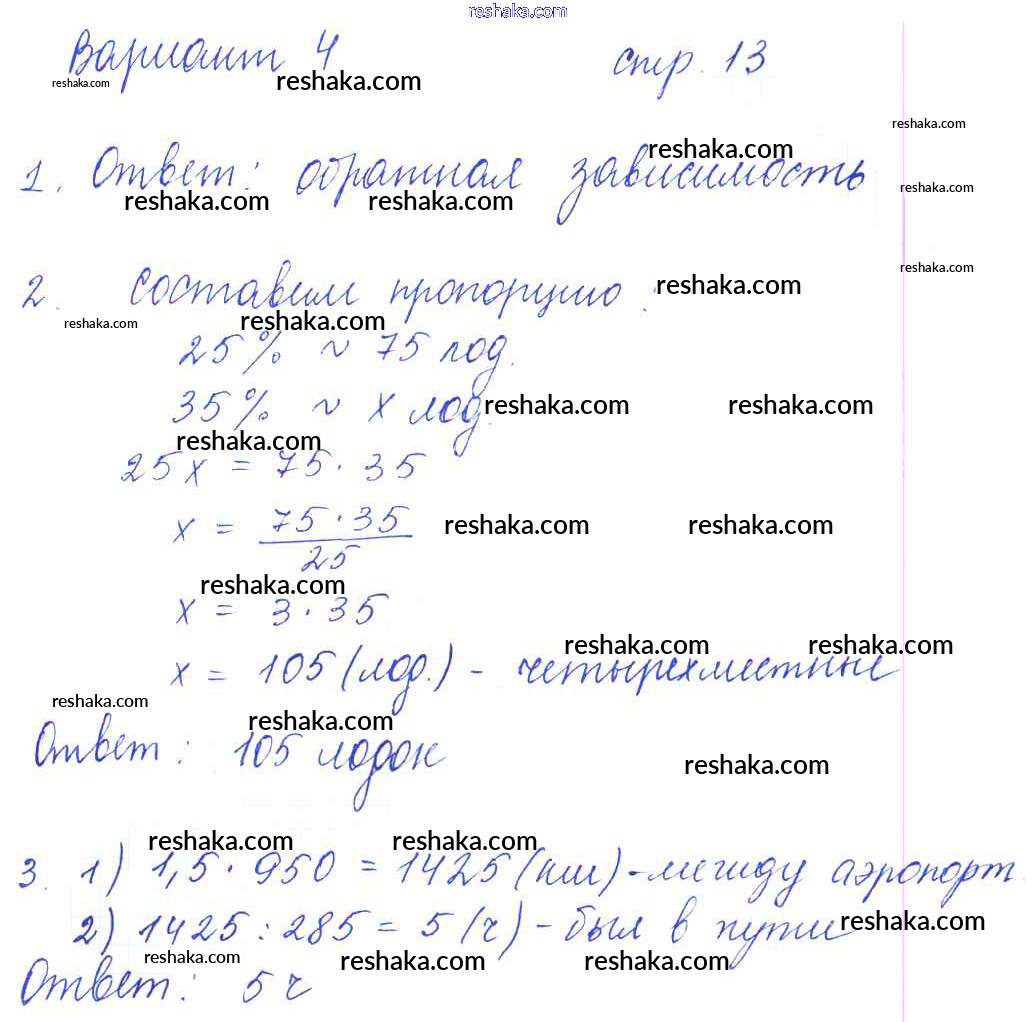 reshaka.com
Вариант 4 стр. 13
reshaka.com reshaka.com
reshaka.com
reshaka.com
1. Ответ: обратная зависимость
reshaka.com reshaka.com reshaka.com
reshaka.com
2. Составим пропорцию: reshaka.com
reshaka.com reshaka.com
25% ~ 75 лод.
35% ~ x лод. reshaka.com reshaka.com
reshaka.com
25x = 75 · 35
x = 75·35 / 25 reshaka.com reshaka.com
reshaka.com
x = 3 · 35
reshaka.com reshaka.com
x = 105 (лод.) - четырехместные
reshaka.com reshaka.com
Ответ: 105 лодок
reshaka.com
reshaka.com reshaka.com
3. 1) 1,5 · 950 = 1425 (км) - между аэропорт.
2) 1425 : 285 = 5 (ч) - был в пути reshaka.com
reshaka.com reshaka.com reshaka.com
Ответ: 5 ч